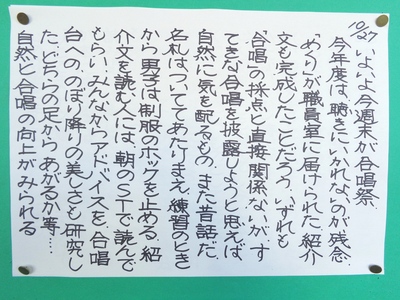 10/27
いよいよ今週末が合唱祭、
今年度は、聴きにいかれないのが残念.
「めくり」が職員室に届けられた.紹介
文も完成したことだろう.いずれも
「合唱」の採点と直接関係ないが、す
てきな合唱を披露しようと思えば、
自然に気を配るもの.また昔話だ.
名札はついててあたりまえ.練習のとき
から男子は制服のホックを止める.紹
介文を読む人には、朝のSTで読んで
もらい、みんなからアドバイスを、合唱
台への、のぼり降りの美しさも研究し
た.どちらの足からあがるか等…
自然と合唱の向上がみられる